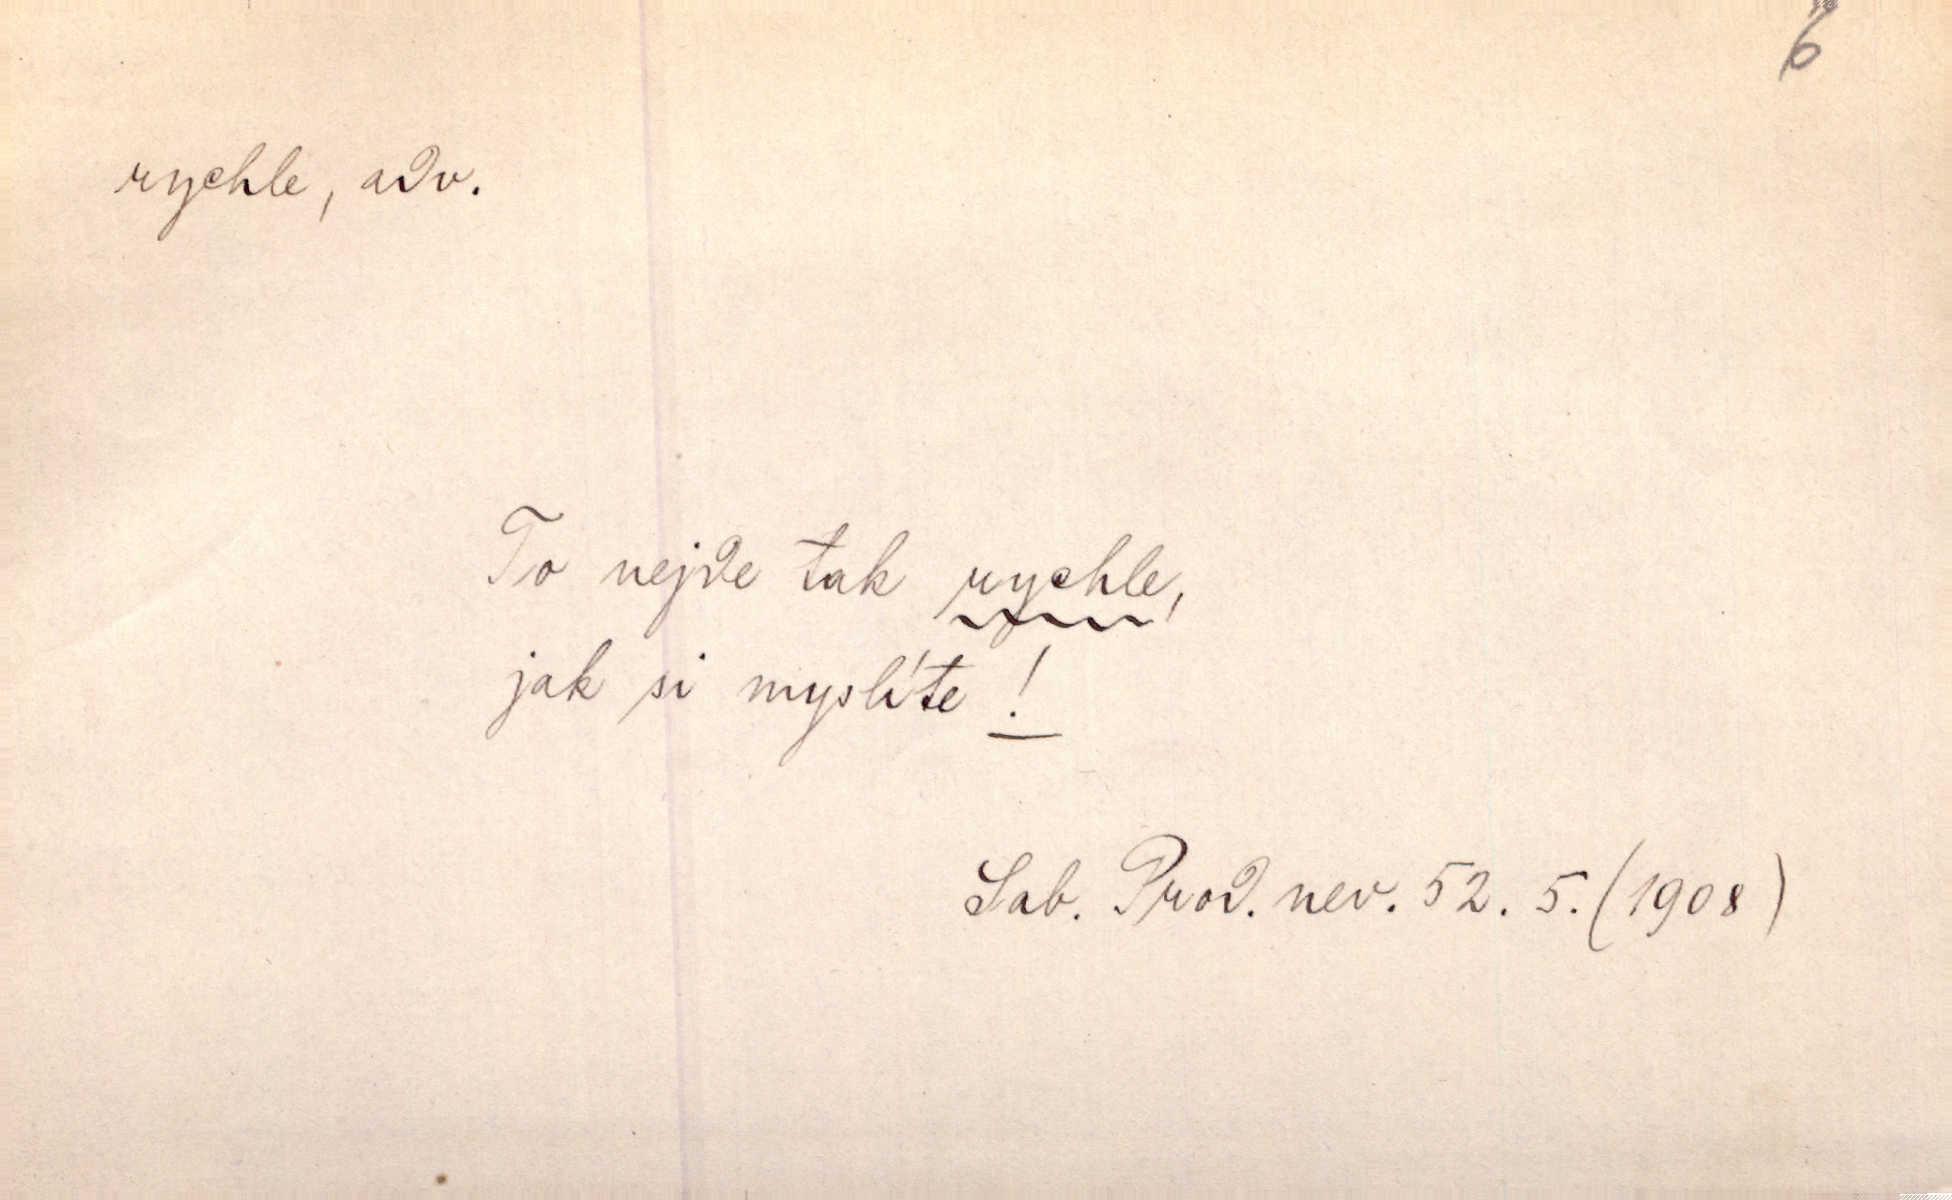 6
rychle, adv.
To nejde tak rychle,
jak si myslíte!
Lab. Prod. nev. 52. 5. (1908)